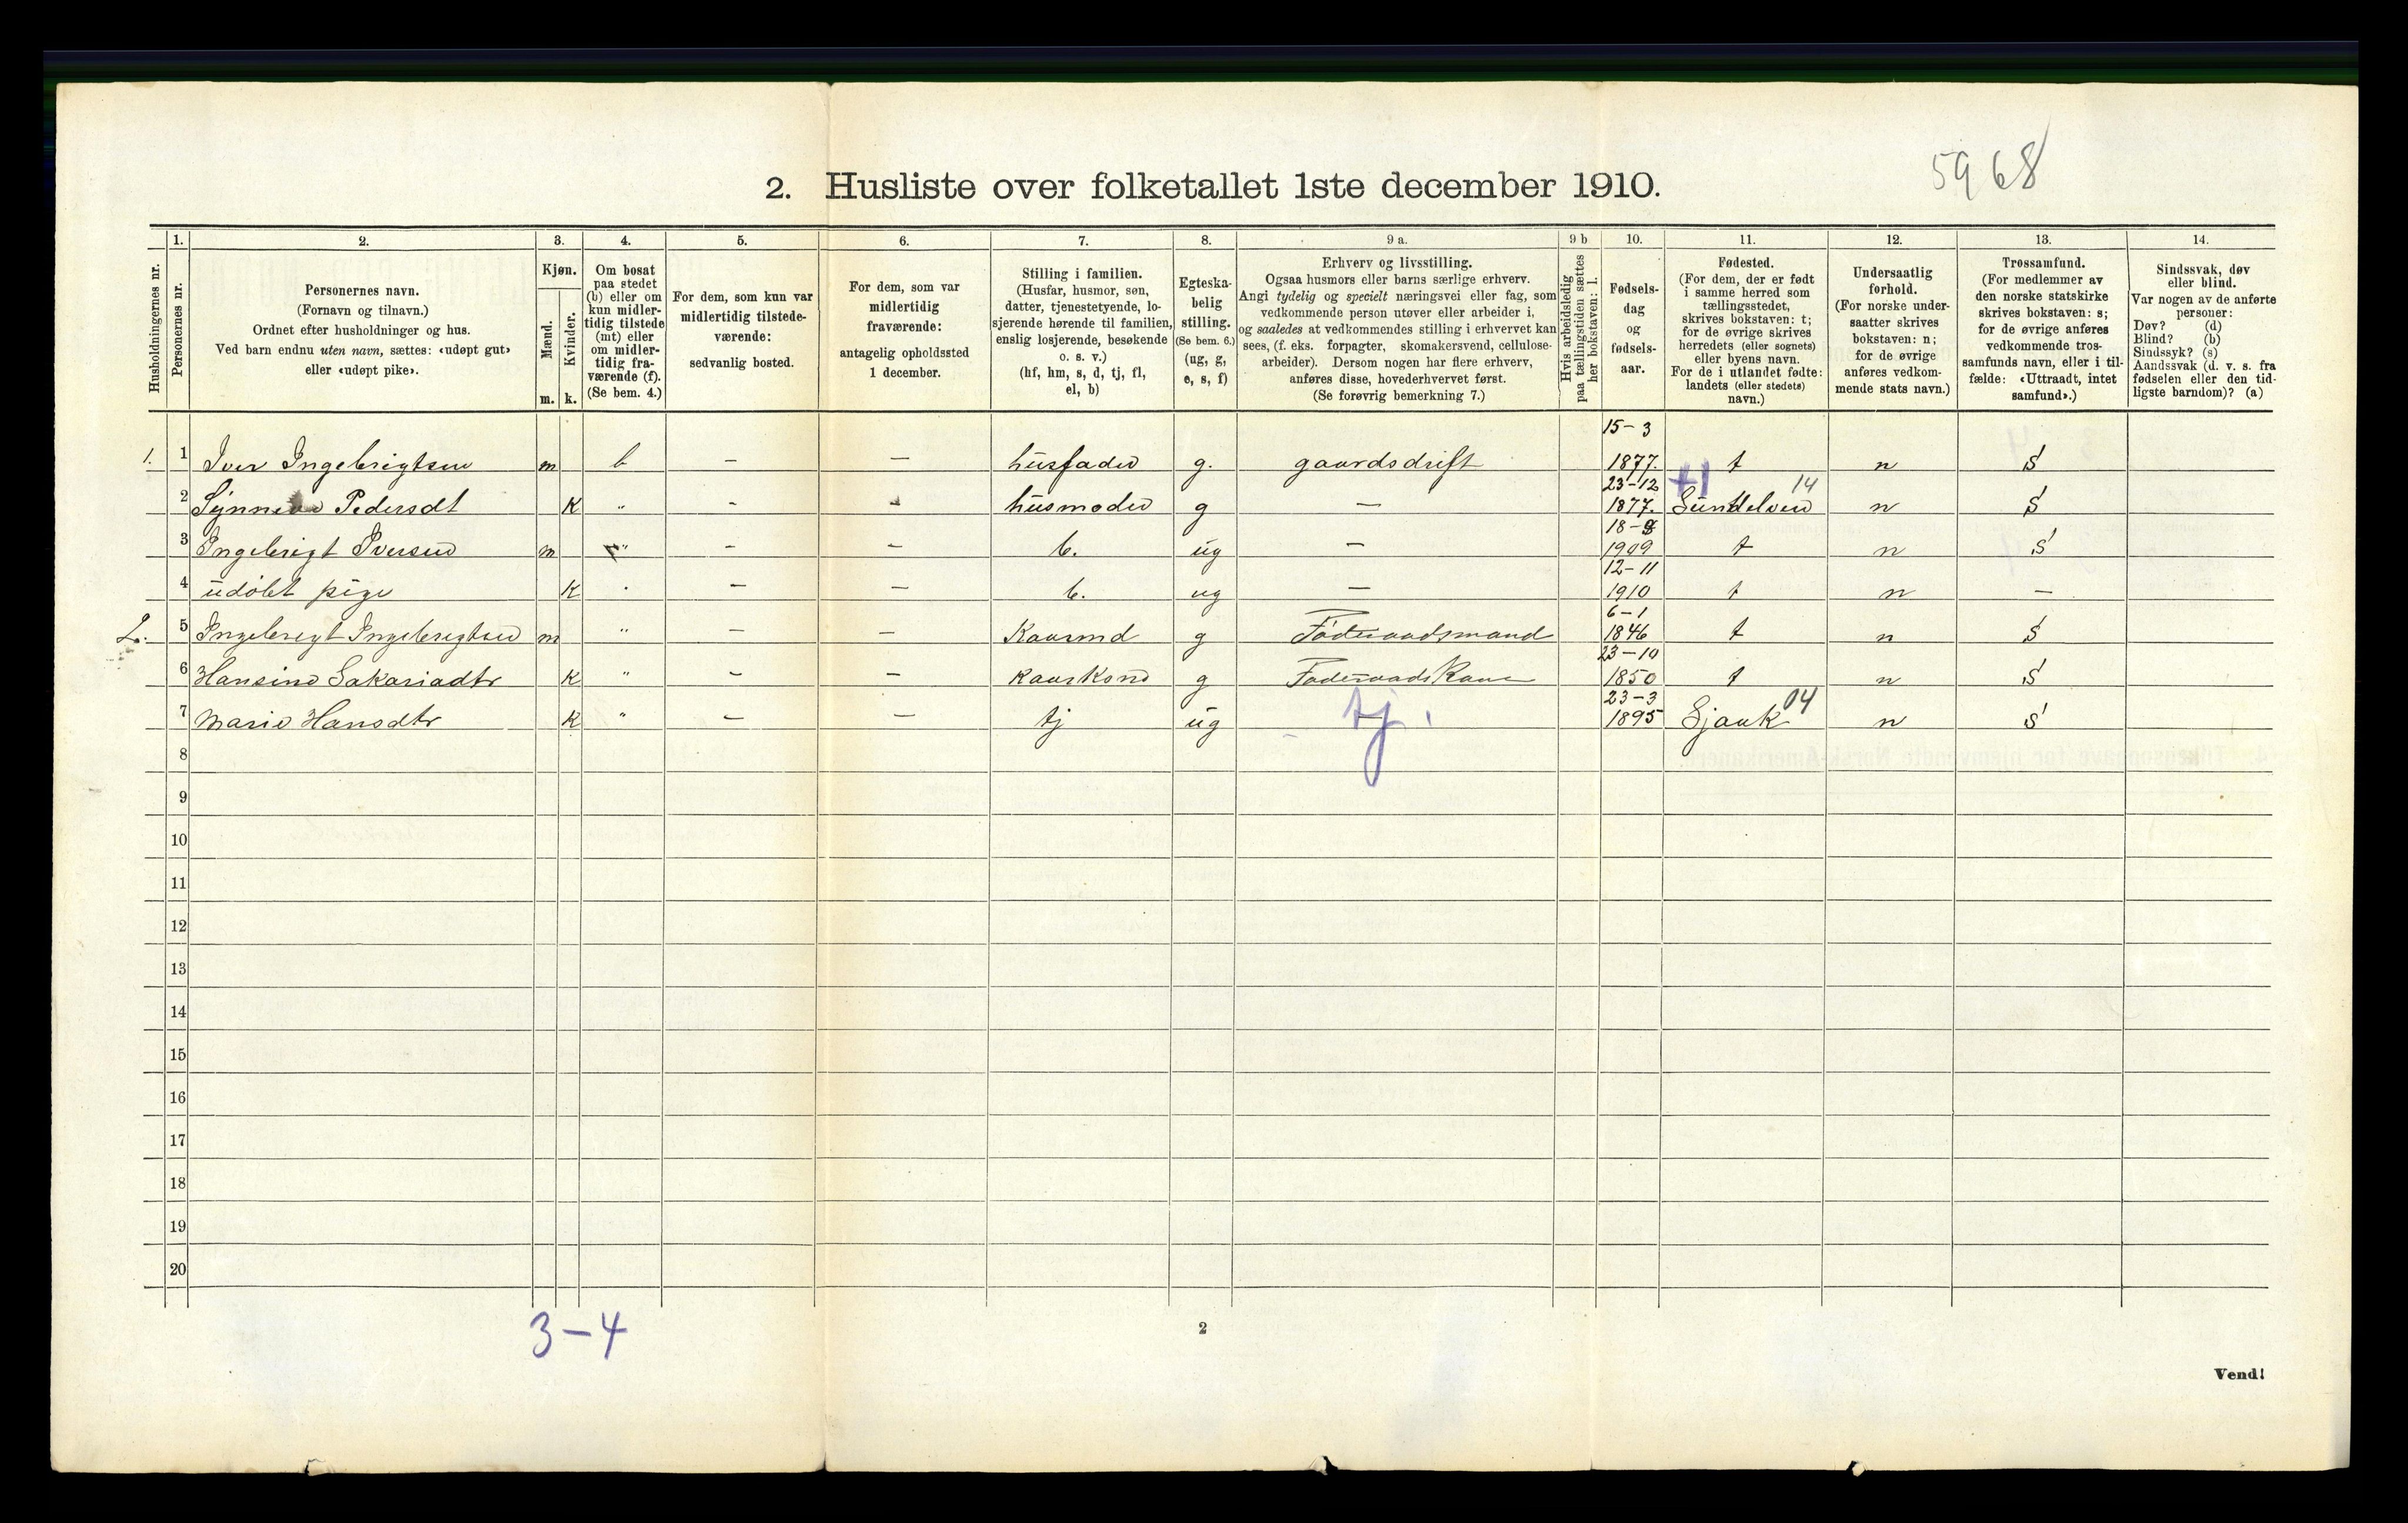 5968
2. Husliste over folketallet 1ste december 1910.
Husholdningernes nr.
1.
Personernes nr.
2.
Personernes navn.
(Fornavn og tilnavn.)
Ordnet efter husholdninger og hus.
Ved barn endnu uten navn, sættes: «udøpt gut»
eller «udøpt pike».
3.
Kjøn.
Mænd.
Kvinder.
m. k.
4.
Om bosat
paa stedet
(b) eller om
kun midler-
tidig tilstede
(mt) eller
om midler-
tidig fra-
værende (f).
(Se bem. 4.)
5.
For dem, som kun var
midlertidig tilstede-
værende:
sedvanlig bosted.
6.
For dem, som var
midlertidig
fraværende:
antagelig opholdssted
1 december.
7.
Stilling i familien.
(Husfar, husmor, søn,
datter, tjenestetyende, lo-
sjerende hørende til familien,
enslig losjerende, besøkende
o. s. v.)
(hf, hm, s, d, tj, fl,
el, b)
8.
Egteska-
belig
stilling.
(Se bem. 6.)
(ug, g,
e, s, f)
9 a.
Erhverv og livsstilling.
Ogsaa husmors eller barns særlige erhverv.
Angi tydelig og specielt næringsvei eller fag, som
vedkommende person utøver eller arbeider i,
og saaledes at vedkommendes stilling i erhvervet kan
sees, (f. eks. forpagter, skomakersvend, cellulose-
arbeider). Dersom nogen har flere erhverv,
anføres disse, hovederhvervet først.
(Se forøvrig bemerkning 7.)
9 b
Hvis arbeidsledig
paa tællingstiden sættes
her bokstaven: l.
10.
Fødsels-
dag
og
fødsels-
aar.
11.
Fødested.
(For dem, der er født
i samme herred som
tællingsstedet,
skrives bokstaven: t;
for de øvrige skrives
herredets (eller sognets)
eller byens navn.
For de i utlandet fødte:
landets (eller stedets)
navn.)
12.
Undersaatlig
forhold.
(For norske under-
saatter skrives
bokstaven: n;
for de øvrige
anføres vedkom-
mende stats navn.)
13.
Trossamfund.
(For medlemmer av
den norske statskirke
skrives bokstaven: s;
for de øvrige anføres
vedkommende tros-
samfunds navn, eller i til-
fælde: «Uttraadt, intet
samfund».)
14.
Sindssvak, døv
eller blind.
Var nogen av de anførte
personer:
Døv? (d)
Blind? (b)
Sindssyk? (s)
Aandssvak (d. v. s. fra
fødselen eller den tid-
ligste barndom)? (a)
1. 1 Iver Ingebrigtsen m b – – husfader g. gaardsdrift 15-3 1877. t n S
2 Synneve Pedersdt K " - - husmoder g – 23-12 1877. Sundelven 14 n S
3 Ingebrigt Iversen m " – – b. ug – 18-9 1909 t n S
4 udöbt pige K " – – b. ug – 12-11 1910 t n –
2. 5 Ingebrigt Ingebrigtsen m " – – Kaarmd g Föderaadsmand 6-1 1846 t n S
6 Hansine Sakariadtr K " – – Kaarkone g Föderaads Kone 23-10 1850 t n S
7 Marie Hansdtr K " – – tj ug tj. 23-3 1895 Sjaak 04 n S
8
9
10
11
12
13
14
15
16
17
18
19
20
3–4
2
Vend!